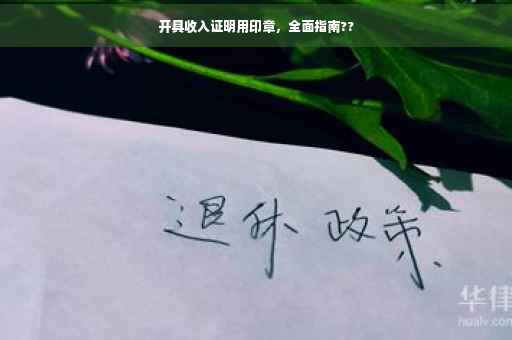 开具收入证明用印章，全面指南??
退休政策
华律
hualv.com